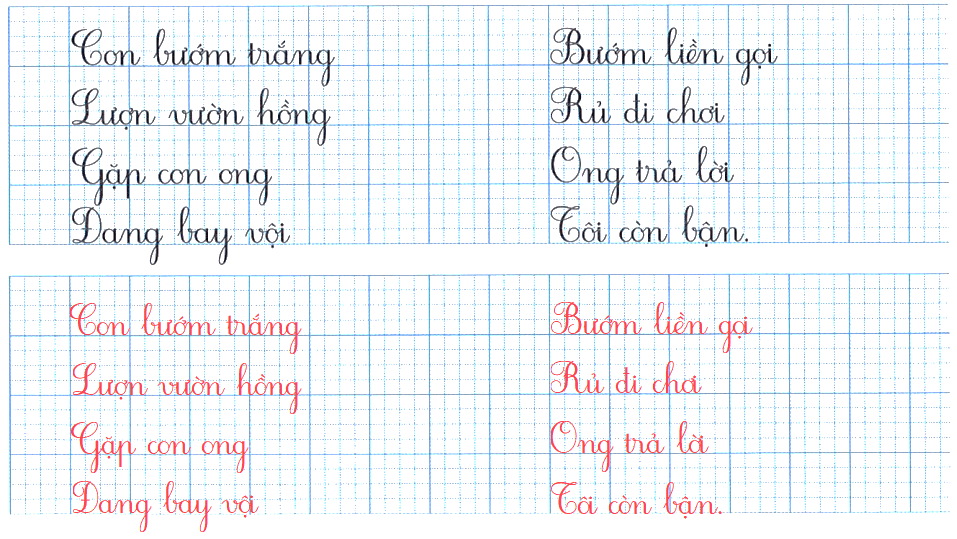 Con bướm trắng
Lượn vườn hồng
Gặp con ong
Đang bay vội
Bướm liền gọi
Rủ đi chơi
Ong trả lời
Tôi còn bận.
Con bướm trắng
Lượn vườn hồng
Gặp con ong
Đang bay vội
Bướm liền gọi
Rủ đi chơi
Ong trả lời
Tôi còn bận.